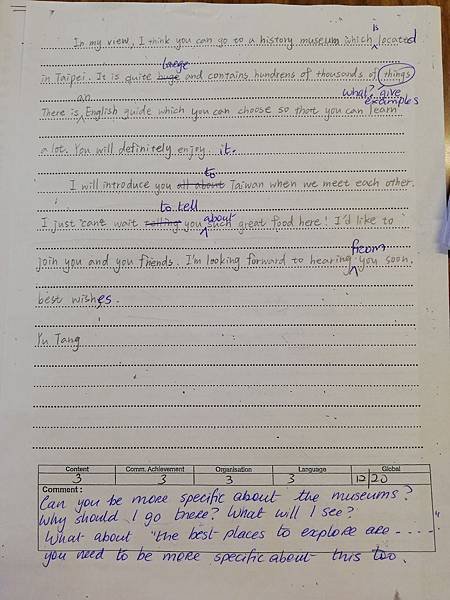 is
In my view, I think you can go to a history museum which located
large
in Taipei. It is quite huge and contains hundrens of thousands of things
an what? give
examples
There is English guide which you can choose so that you can learn
a lot. You will definitely enjoy it.
to
I will introduce you all about Taiwan when we meet each other.
to tell about
I just cant wait telling you such great food here! I'd like to
from
join you and you friends. I'm looking forward to hearing you soon.
best wishes.
Yu Tang
Content Comm. Achievement Organisation Language Global
3 3 3 3 12/20
Comment:
Can you be more specific about the museums?
Why should I go there? What will I see?
What about "the best places to explore are ----"
you need to be more specific about this too.